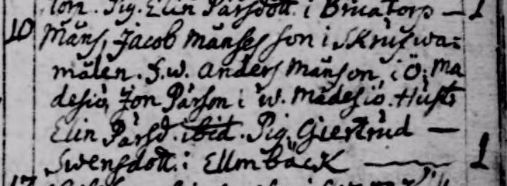 torn. Pig. Elin Parsdott. i Bruatorp — 1
10 Måns, Jacob Månses son i Skruswa=
målen. S.w. Anders Månson, i Ö. Ma
desiö, Jon Pärson i w. Madesiö. Hust
Elin Pärsd. ibid. Pig. Giertrud —
Swensdott. i Ellmbäck — 1